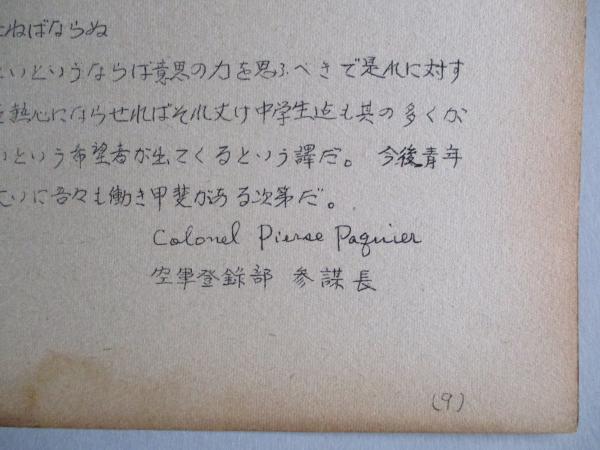 ねばならぬ
いというならば意思の力を思ふべきで是れに対す
熱心にならせればそれ丈け中学生迄も其の多くが
いという希望者が出てくるという譯だ。 今後青年
いに吾々も働き甲斐がある次第だ。
Colonel Pierse Paquier
空軍登録部 参謀長
(9)